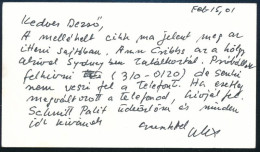 Feb 15, 01
Kedves Dezső,
A mellékelt cikk ma jelent meg az
itteni sajtóban. Ann Cribbs az a hölgy
akivel Sydneyben találkoztál. Próbállak
felhívni (310-0120) de senki
nem veszi fel a telefont. Ha esetleg
megváltozott a telefonod, hívjál fel.
Schmitt Palit üdvözlöm és minden
jót kívánok